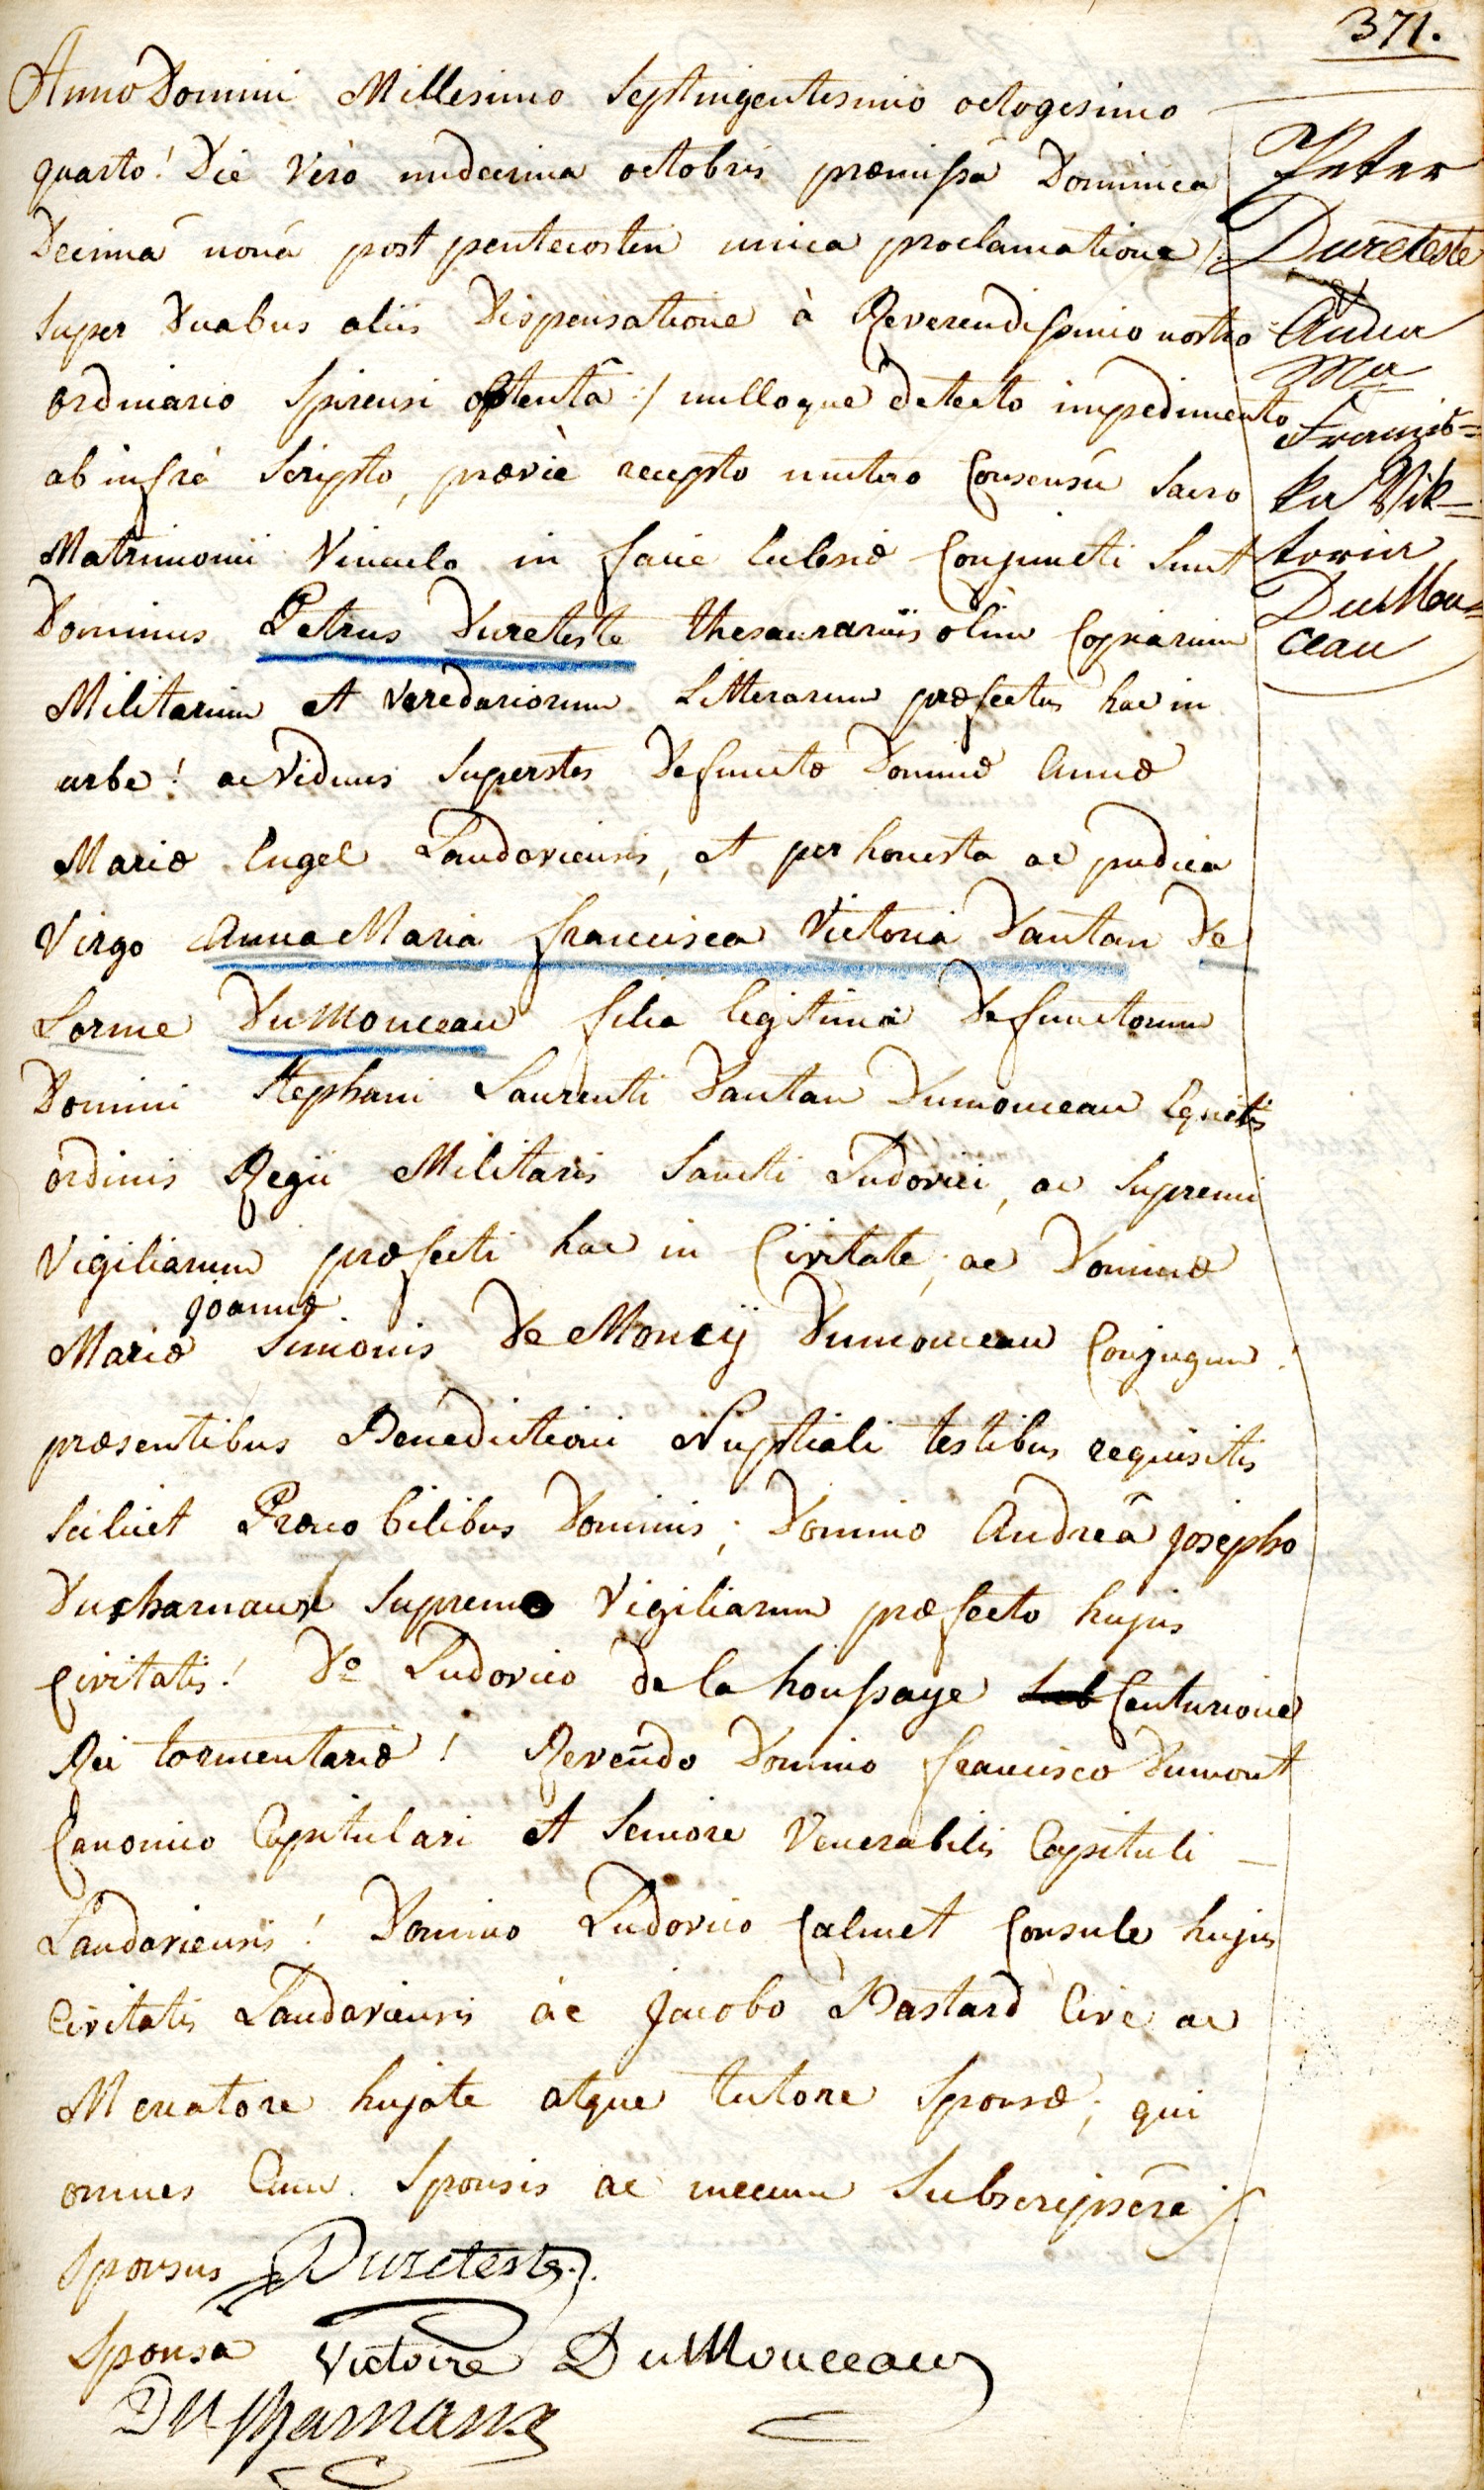 371.
Anno Domini Millesimo Septingentesimo octogesimo
quarto! Die Verò undecima octobris præmissâ Dominica
Decimâ nonâ post pentecosten unica proclamatione /:
super Duabus aliis Dispensatione à Reverendissimo nostro
ordinario Spirensi optentâ :/ nulloque detecto impedimento
ab infrà scripto, prævie recepto mutuo Consensu sacro
Matrimonii Vinculo in facie Eclesiæ Conjuncti sunt
Dominus Petrus Dureteste thesaurarius olim Copiarum
Militarium et Veredariorum Litterarum præfectus hac in
urbe! ac Viduus superstes Defunctæ Dominæ Annæ
Mariæ Engel Landaviensis, et per honesta ac pudica
Virgo Anna Maria francisca Victoria Dautan De
Lorme DuMonceau filia legitima Defunctorum
Domini Stephani Laurenti Dautan Dumonceau Equitis
ordinis Regii Militaris Sancti Ludovici, ac Supremi
Vigiliarum præfecti hac in Civitate, ac Dominæ
joannæ
Mariæ Simonis De Moncij Dumonceau Conjugum!
præsentibus Benedictioni Nuptiali testibus requisitis
scilicet Prænobilibus Dominis; Domino Andreâ josepho
Ducharnaux Supremo Vigiliarum præfecto hujus
Civitatis! Do Ludovico de la houssaye Centurione
Rei tormentariæ! Revendo Domino francisco Dumont
Canonico Capitulari et Seniore Venerabilis Capituli
Landaviensis! Domino Ludovico Calmet Consule hujus
Civitatis Landaviensis ac Jacobo Bastard Cive ac
Mercatore hujate atque tutore Sponsæ; qui
omnes Cum Sponsis ac mecum Subscripsere
Sponsus Dureteste
Sponsa Victoire DuMonceau
Ducharnaux
Peter
Dureteste
Anna
Ma
Franzis=
ka Vik=
toria
DuMon=
ceau